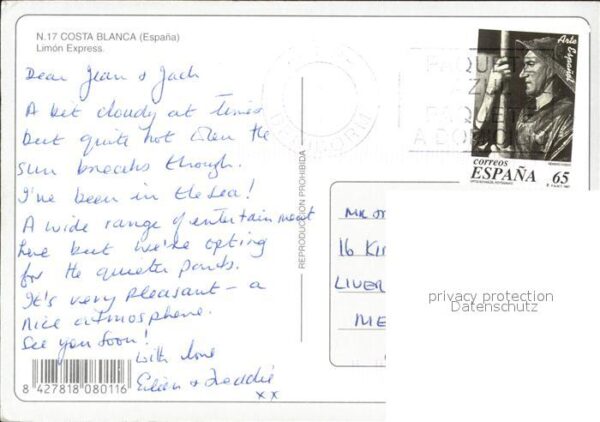 N.17 COSTA BLANCA (España)
Limón Express.
Dear Jean & Jack
A bit cloudy at times
but quite hot when the
sun breaks though.
I've been in the sea!
A wide range of entertainment
here but we're opting
for the quieter parts.
It's very pleasant – a
nice atmosphere.
See you soon!
with love
Eileen & Freddie
xx
8 427818 080116
REPRODUCCION PROHIBIDA
PAQUETE
AZUL
PAQUETE
A DOMICILIO
Arte Español
correos
ESPAÑA 65
MR
16 KIN
LIVER
ME
privacy protection
Datenschutz